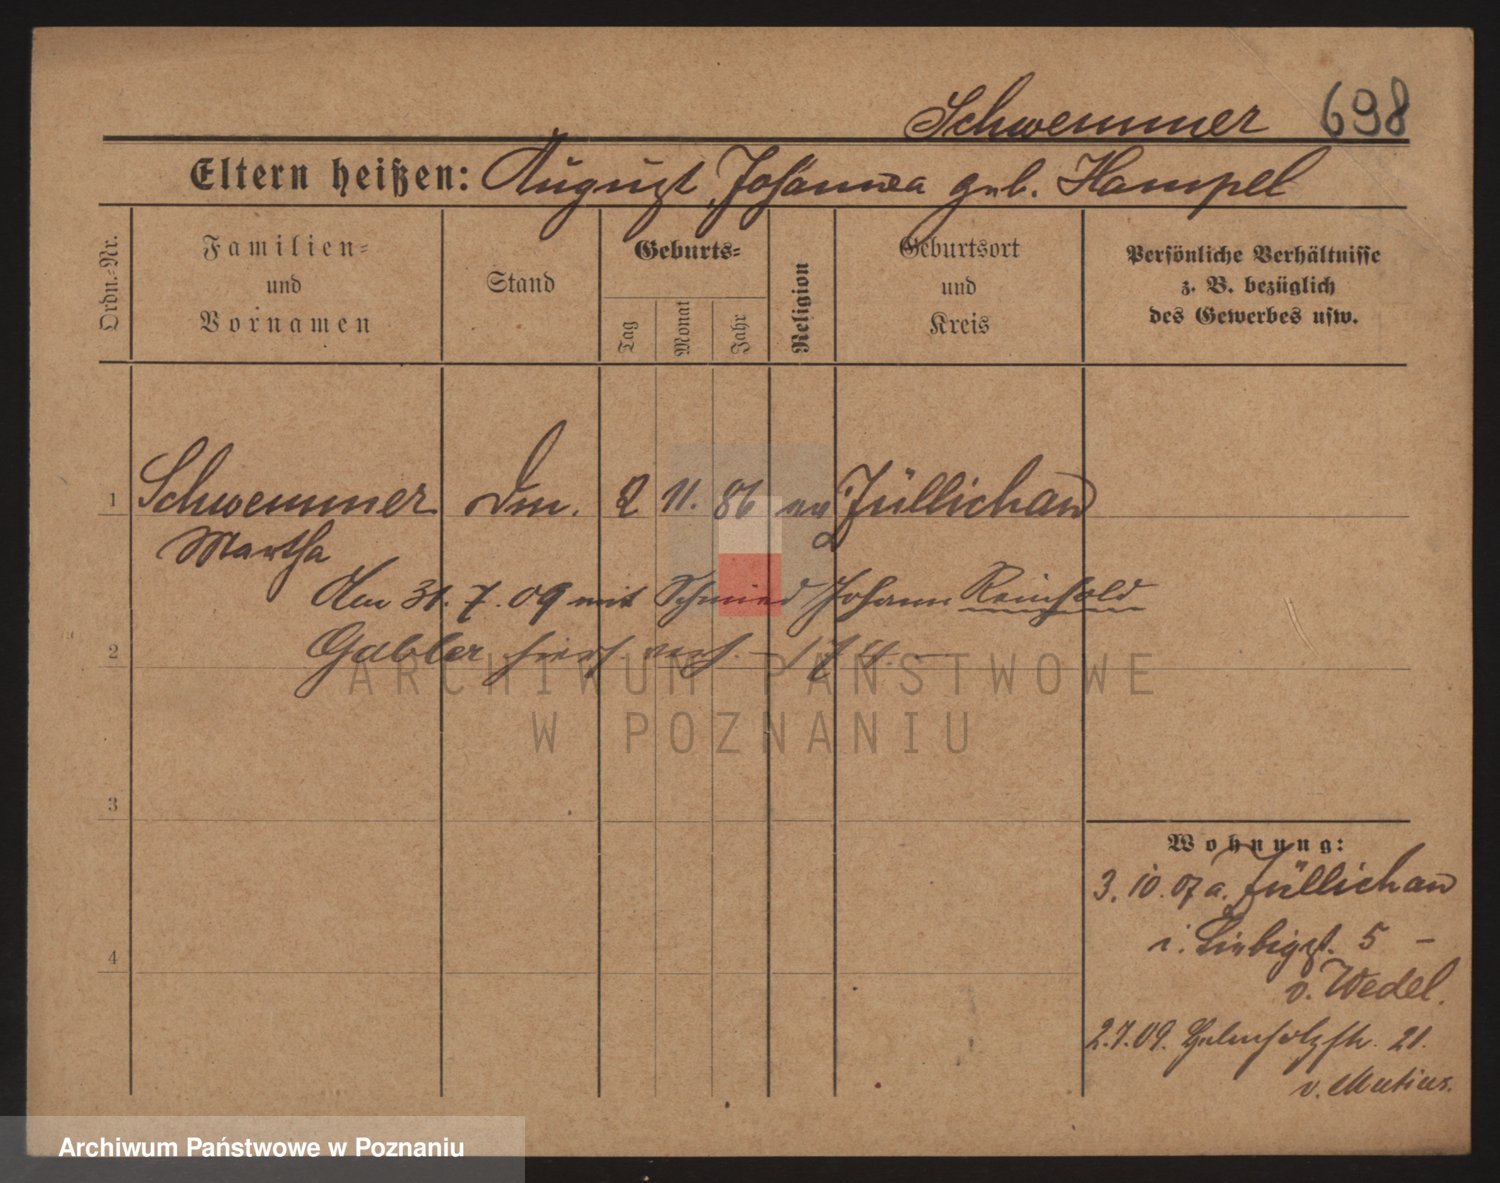 Schwemmer 698
Eltern heißen: August, Johanna geb. Hampel
Ordn.-Nr.
Familien-
und
Vornamen
Stand
Geburts-
Tag
Monat
Jahr
Religion
Geburtsort
und
Kreis
Persönliche Verhältnisse
z. B. bezüglich
des Gewerbes usw.
1 Schwemmer Dm. 2 11. 86 ev Züllichau
Martha
Am 31.7.09 mit Schmied Johann Reinhold
2
Gabler hier verh.
ARCHIWUM PAŃSTWOWE
W POZNANIU
3
Wohnung:
3.10.07 a. Züllichau
i. Liebigst. 5 –
v. Wedel.
4
2.7.09. Helmholzstr. 21.
v. Mutius.
Archiwum Państwowe w Poznaniu